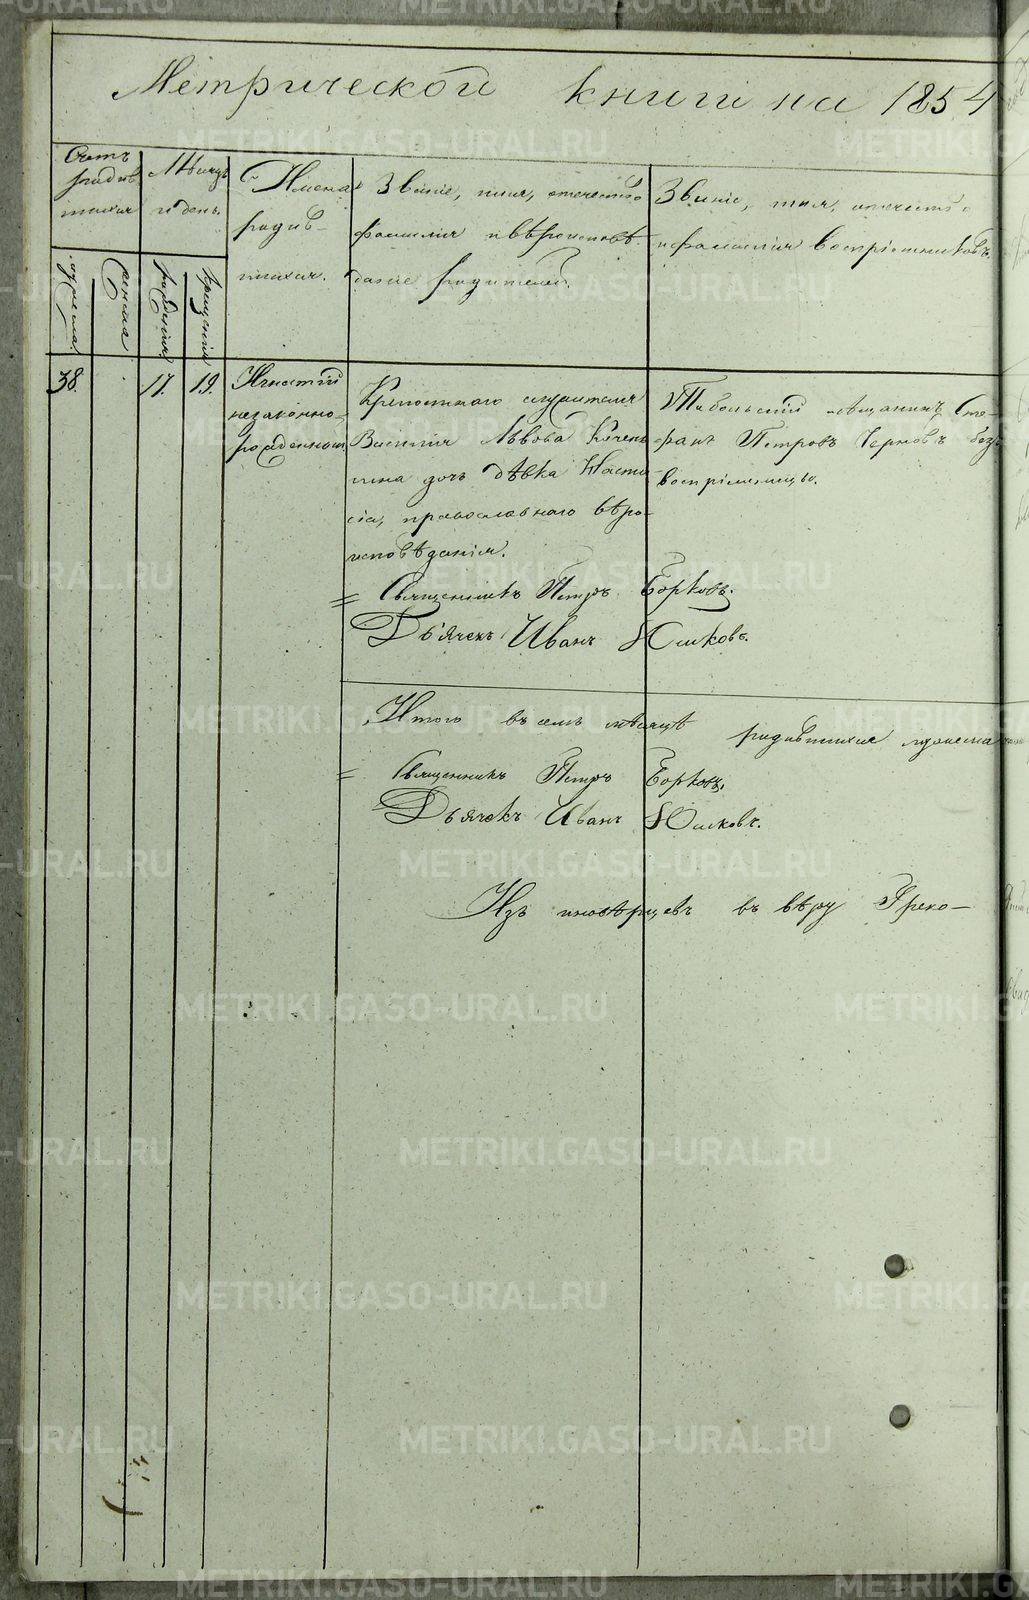 Метрической книги на 1854
Счетъ родив шихся
Мѣсяцъ и день.
Имена родив- шихся.
Званіе, имя, отечество фамилія и вѣроисповѣ- даніе родителей.
Званіе, имя, отечество и фамилія воспріемниковъ.
мужеска
женска
рожденія
крещенія
38. 17. 19.
Игнатій
незаконно-
рожденный
Крѣпостнаго служителя
Василія Львова
дочь дѣвка Наста
сія, православнаго вѣро-
исповѣданія.
Тобольскій мѣщанинъ Сте-
фанъ Петровъ Черновъ безъ
воспріемницы.
= Священникъ Петръ Борковъ.
Дьячекъ Иванъ Юшковъ.
Итого въ семъ мѣсяцѣ родившихся мужеска
= Священникъ Петръ Борковъ.
Дьячекъ Иванъ Юшковъ.
Изъ иновѣрцевъ въ вѣру Греко-
METRIKI.GASO-URAL.RU